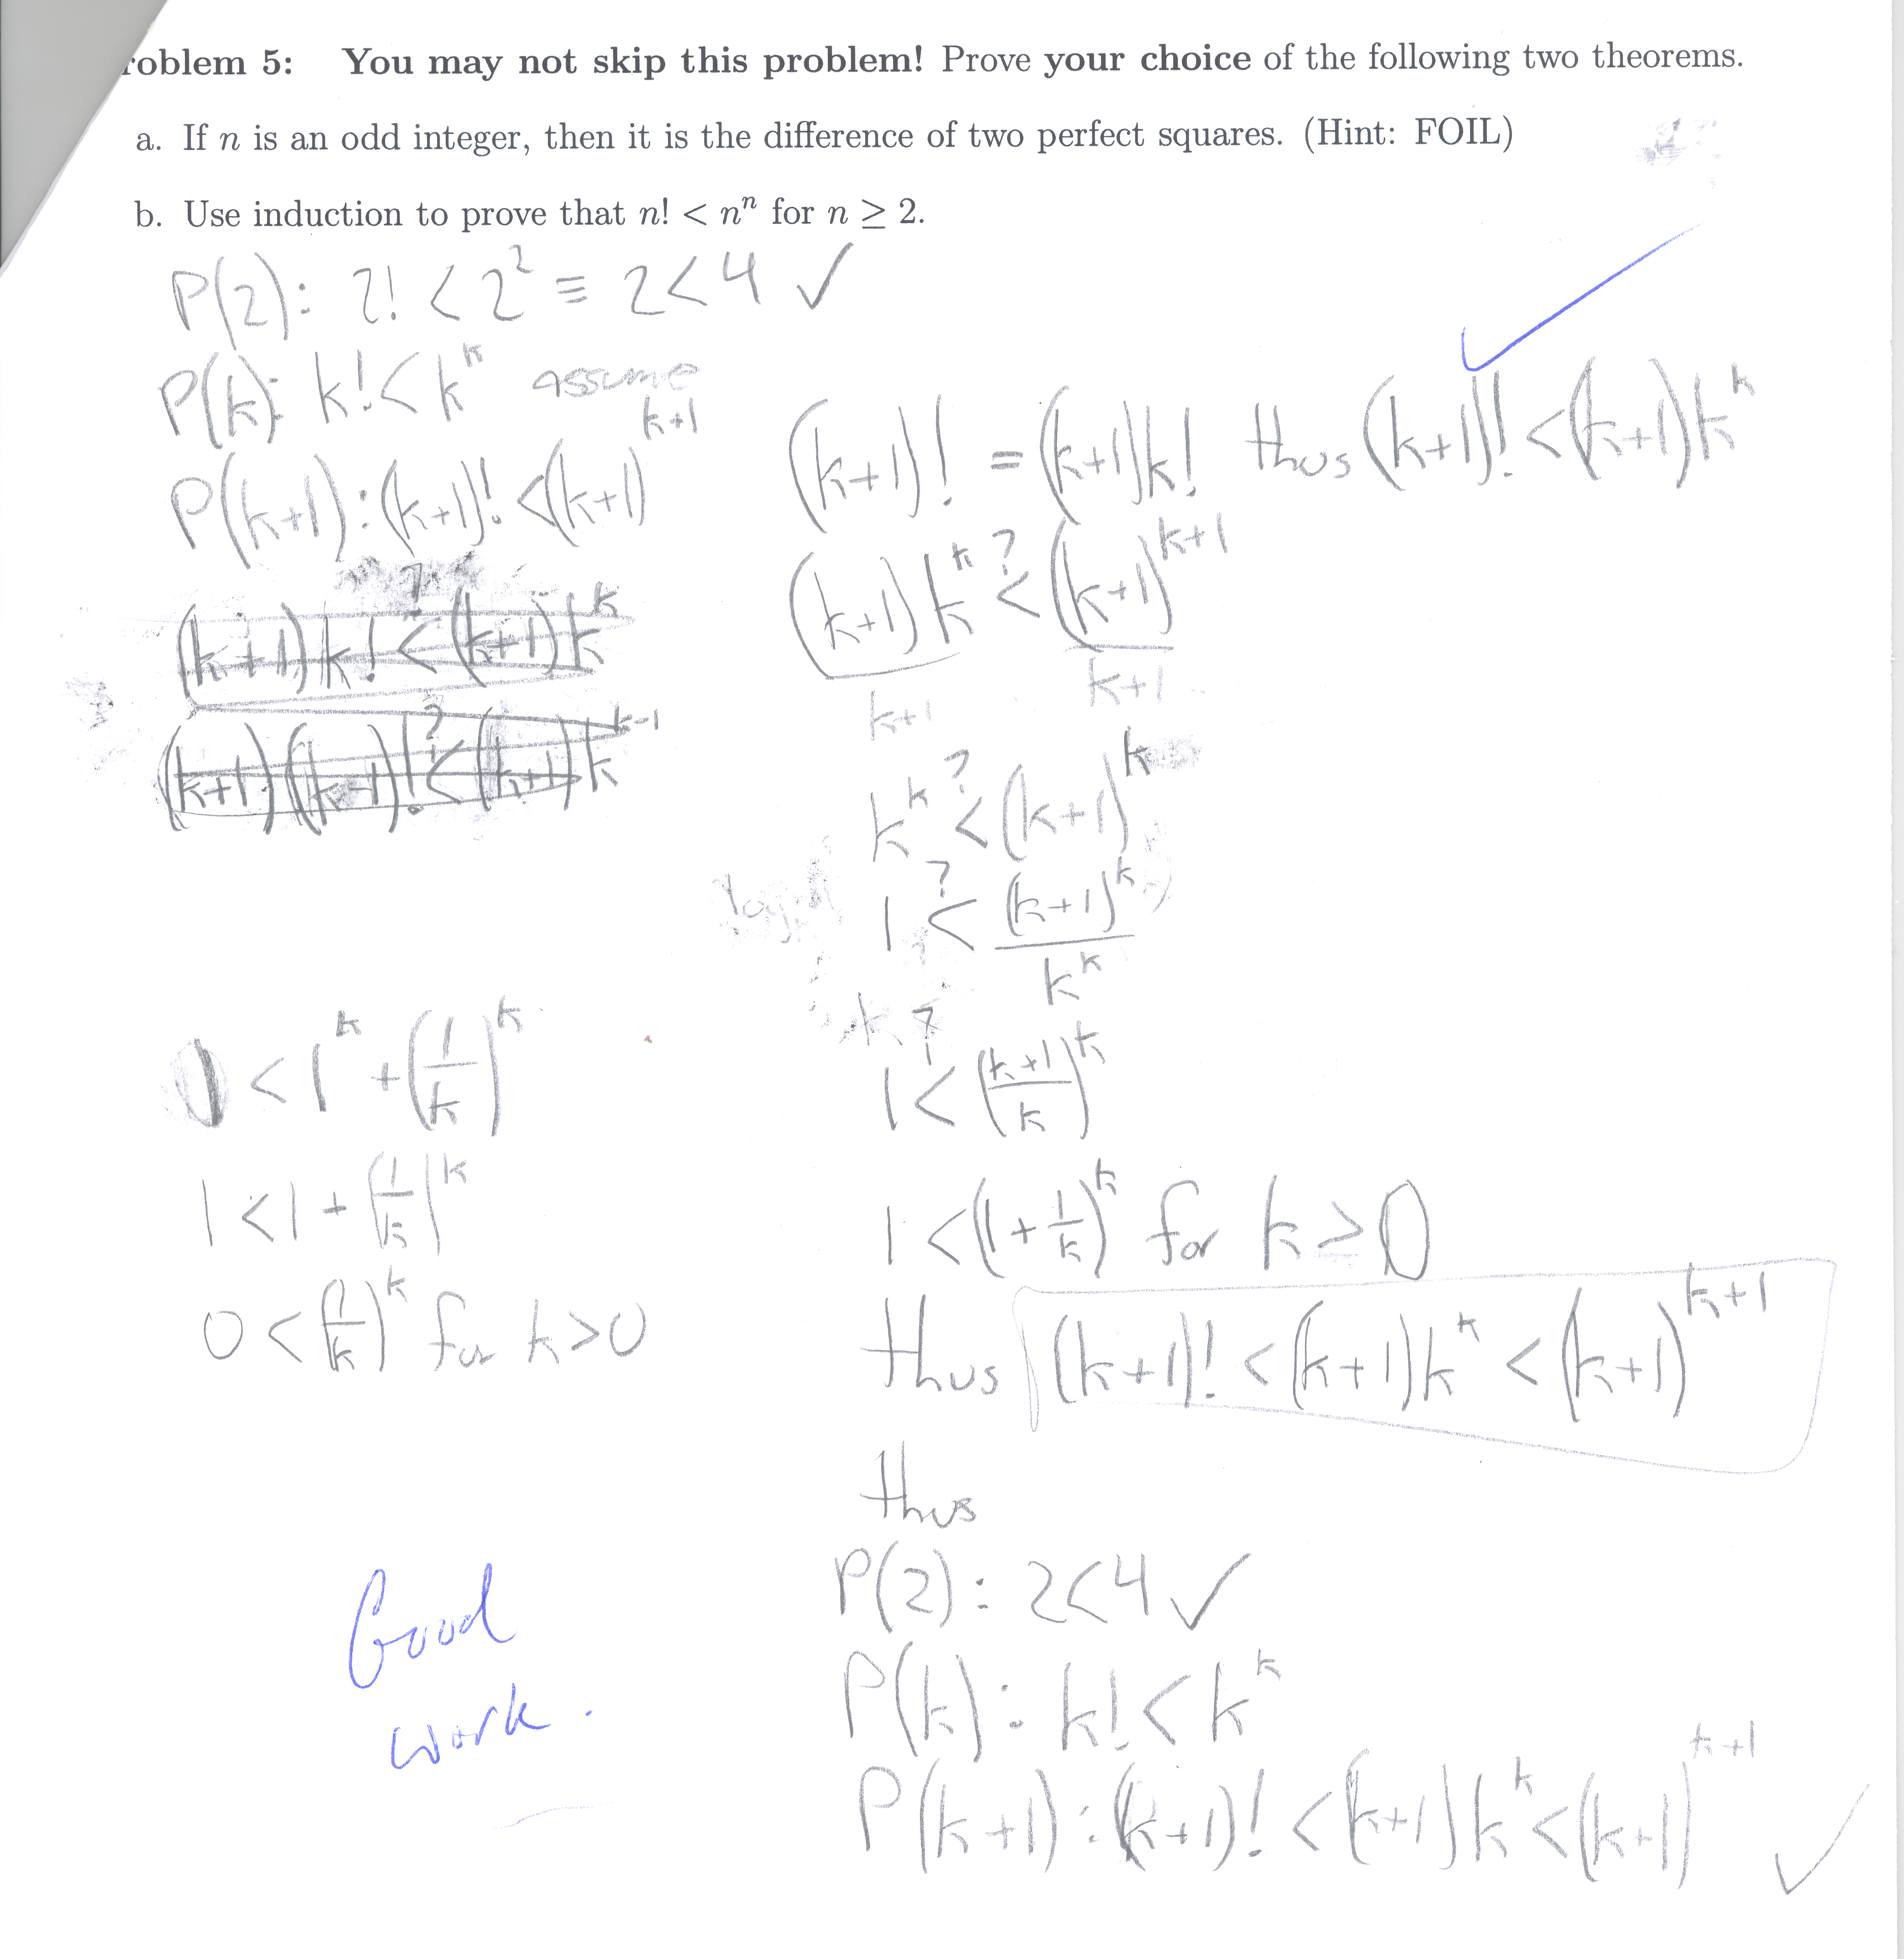 roblem 5: You may not skip this problem! Prove your choice of the following two theorems.
a. If n is an odd integer, then it is the difference of two perfect squares. (Hint: FOIL)
b. Use induction to prove that n! < nⁿ for n ≥ 2.
P(2): 2! < 2² ≡ 2 < 4 ✓
P(k): k! < k^k assume
P(k+1): (k+1)! < (k+1)^(k+1)
(k+1)k! <? (k+1)k^k
(k+1)(k-1)! <? (k+1)k^(k-1)
(k+1)! = (k+1)k! thus (k+1)! < (k+1)k^k
(k+1)k^k <? (k+1)^(k+1)
k+1 k+1
k^k <? (k+1)^k
1 <? (k+1)^k / k^k
1 <? ((k+1)/k)^k
1 < (1 + 1/k)^k for k > 0
thus (k+1)! < (k+1)k^k < (k+1)^(k+1)
< 1^k + (1/k)^k
1 < 1 + (1/k)^k
0 < (1/k)^k for k > 0
thus
P(2): 2 < 4 ✓
P(k): k! < k^k
P(k+1): (k+1)! < (k+1)k^k < (k+1)^(k+1) ✓
Good
work.